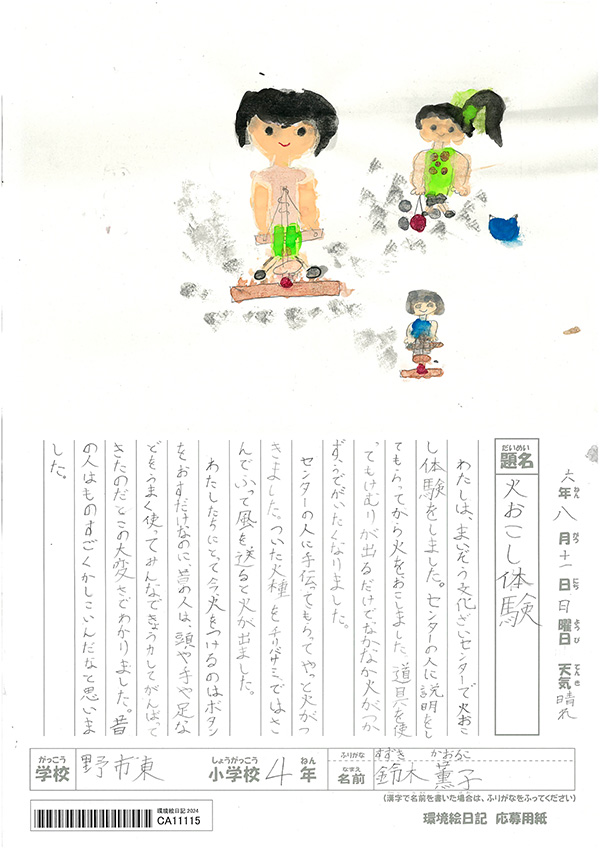 六年八月十一日日曜日 天気晴れ
ねん がつ にち ようび てんき
だいめい
題名 火おこし体験
わたしは、まいぞう文化ざいセンターで火おこ
し体験をしました。センターの人に説明をし
てもらってから火をおこしました。道具を使
ってもけむりが出るだけでなかなか火がつか
ず、うでがいたくなりました。
センターの人に手伝ってもらってやっと火がつ
きました。ついた火種をチリバサミではさ
んでふって風を送ると火が出ました。
わたしたちにとって今火をつけるのはボタン
をおすだけなのに、昔の人は、頭や手や足な
どをうまく使ってみんなできょう力してがんばって
きたのだとこの大変さでわかりました。昔
の人はものすごくかしこいんだなと思いま
した。
がっこう しょうがっこう ねん
学校 野市東 小学校 4年
ふりがな すずき かおるこ
なまえ
名前 鈴木 薫子
(漢字で名前を書いた場合は、ふりがなをふってください)
環境絵日記 2024
CA11115
環境絵日記 応募用紙